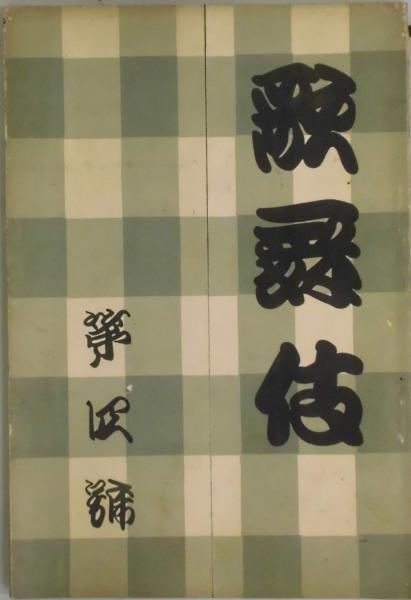 歌舞伎
第四號